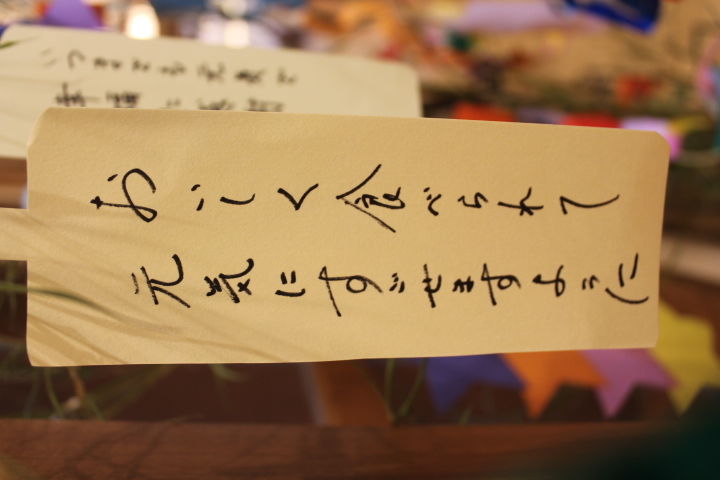 おいしく食べられて
元気にすごせますように